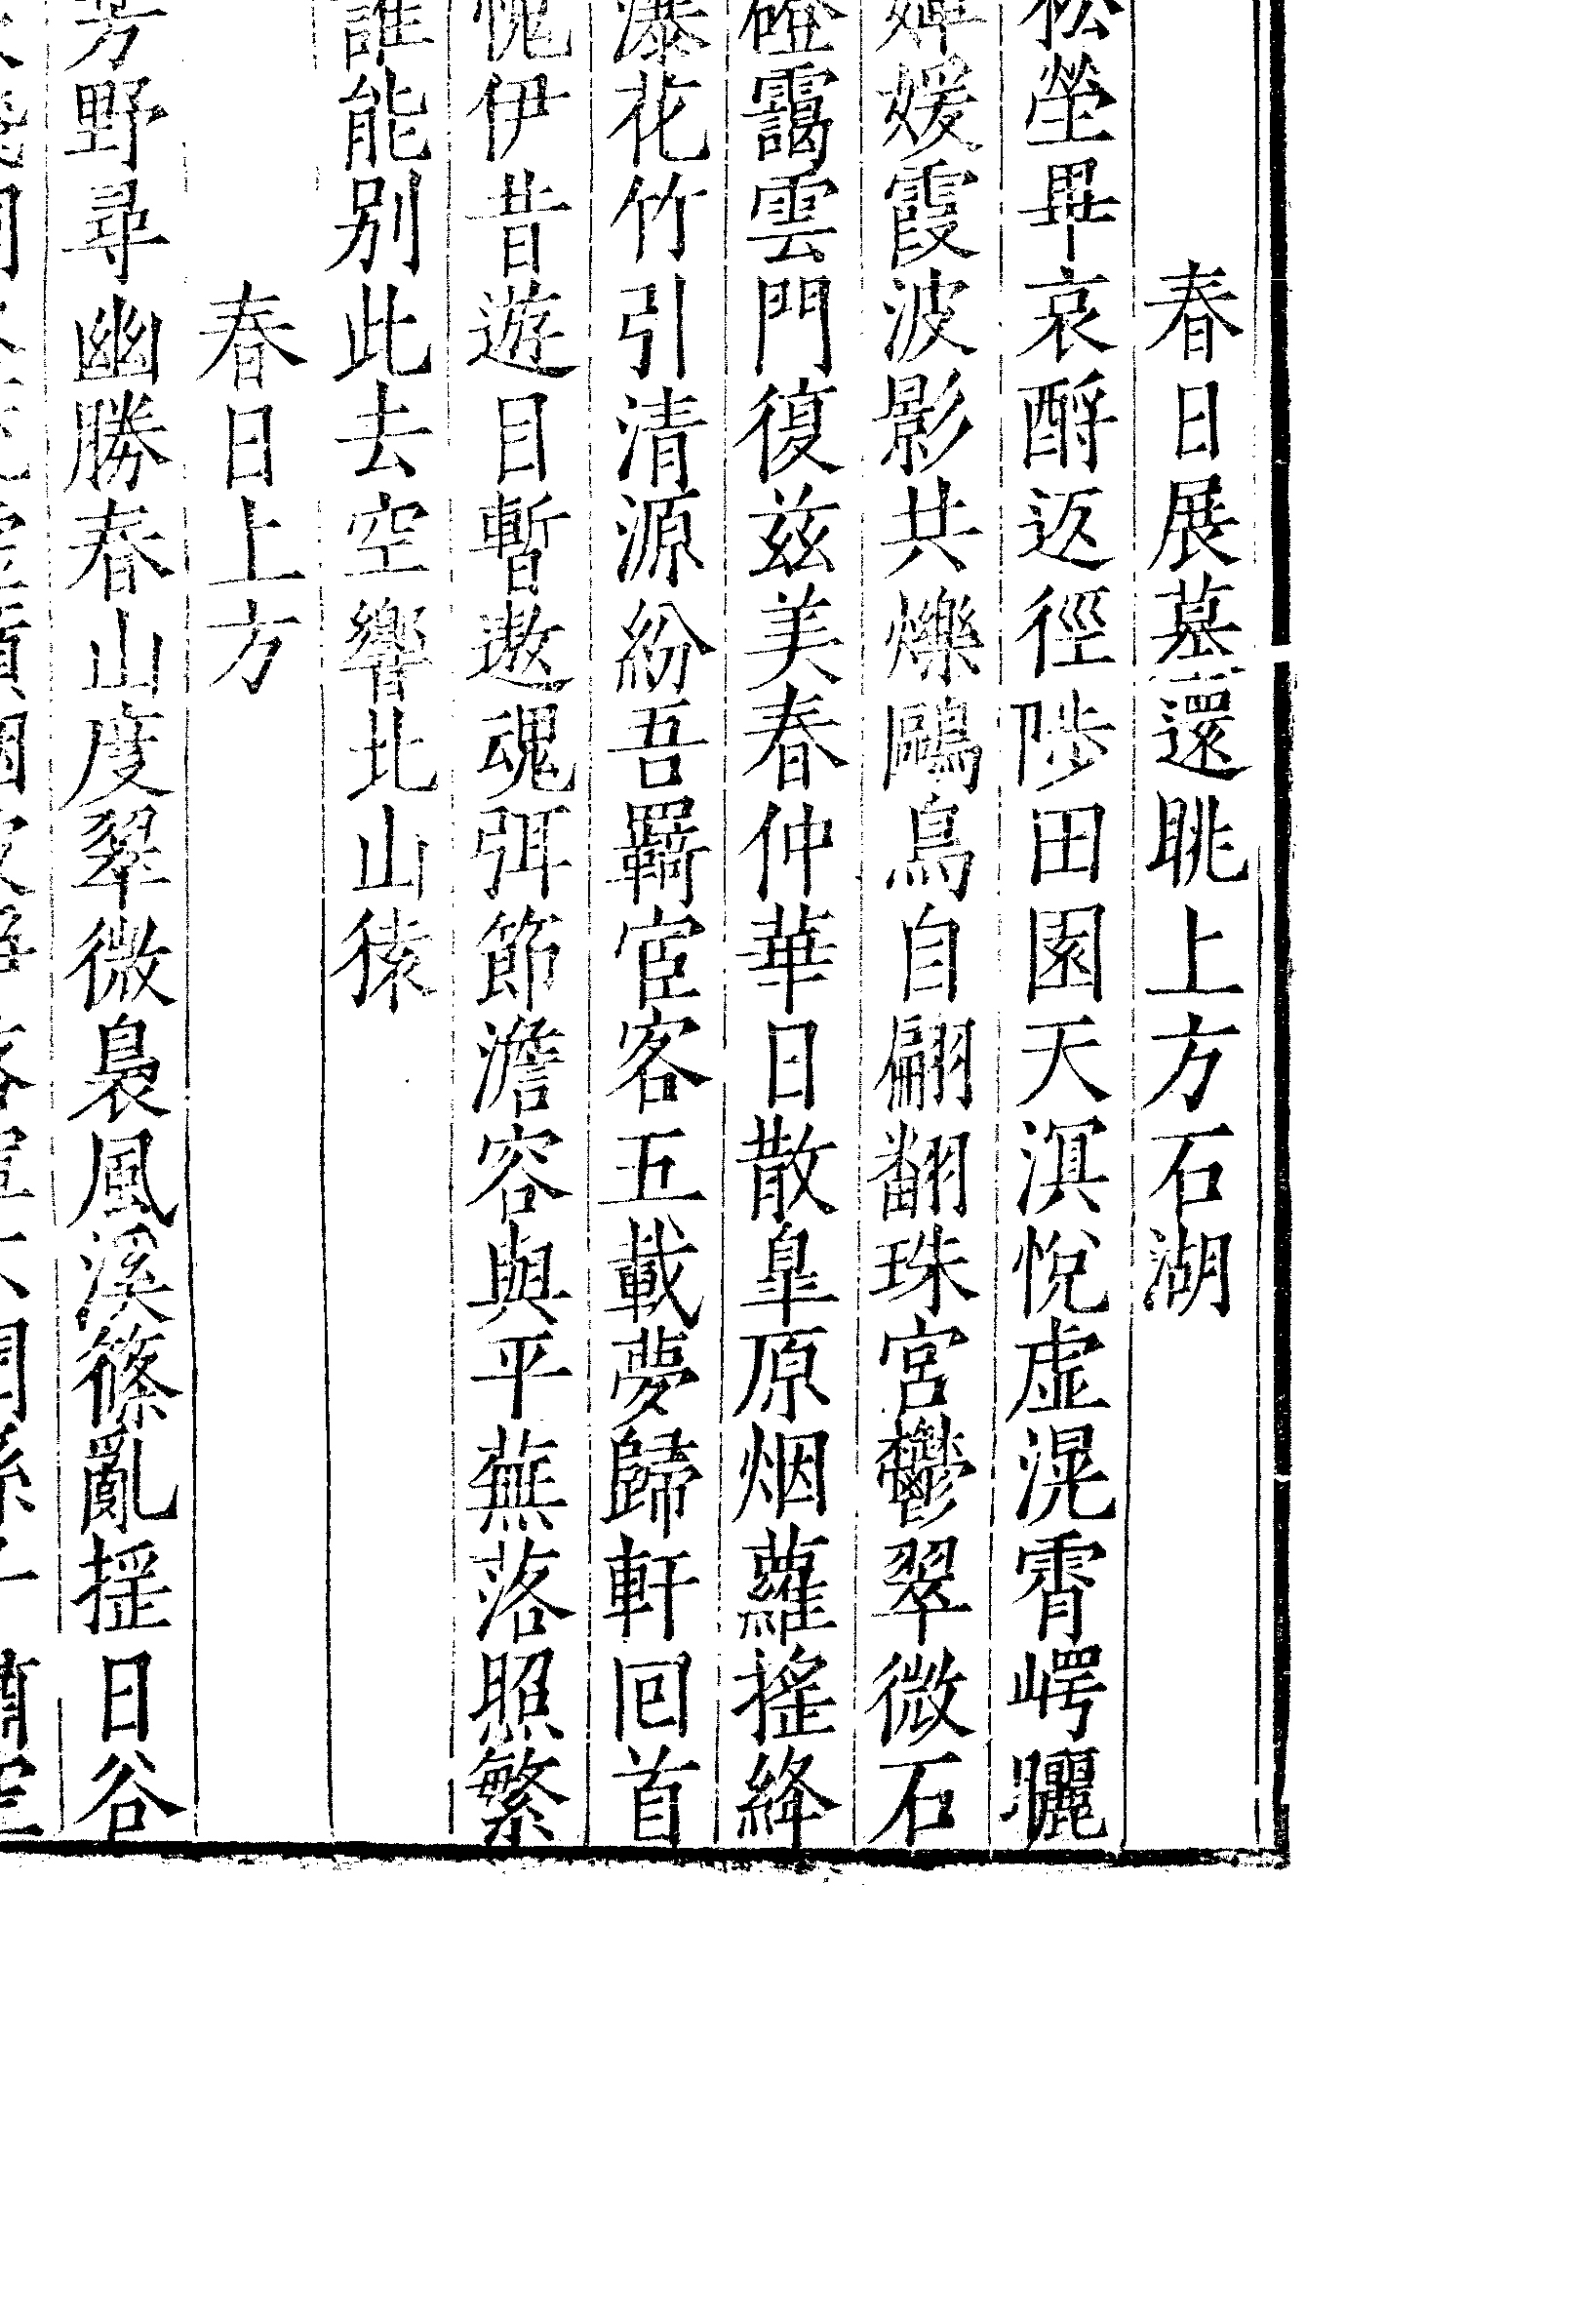 春日展墓還眺上方石湖
松塋畢哀酹返徑陟田園天溟悅虛滉霄崿曬
嬋媛霞波影共爍鷗鳥自翩翻珠宮鬱翠微石
磴靄雲門復茲美春仲華日散臯原烟蘿搖絳
瀑花竹引清源紛吾羇宦客五載夢歸軒回首
愧伊昔遊目暫遨魂弭節澹容與平蕪落照繁
誰能別此去空響北山猿
春日上方
芳野尋幽勝春山度翠微裊風溪篠亂搖日谷